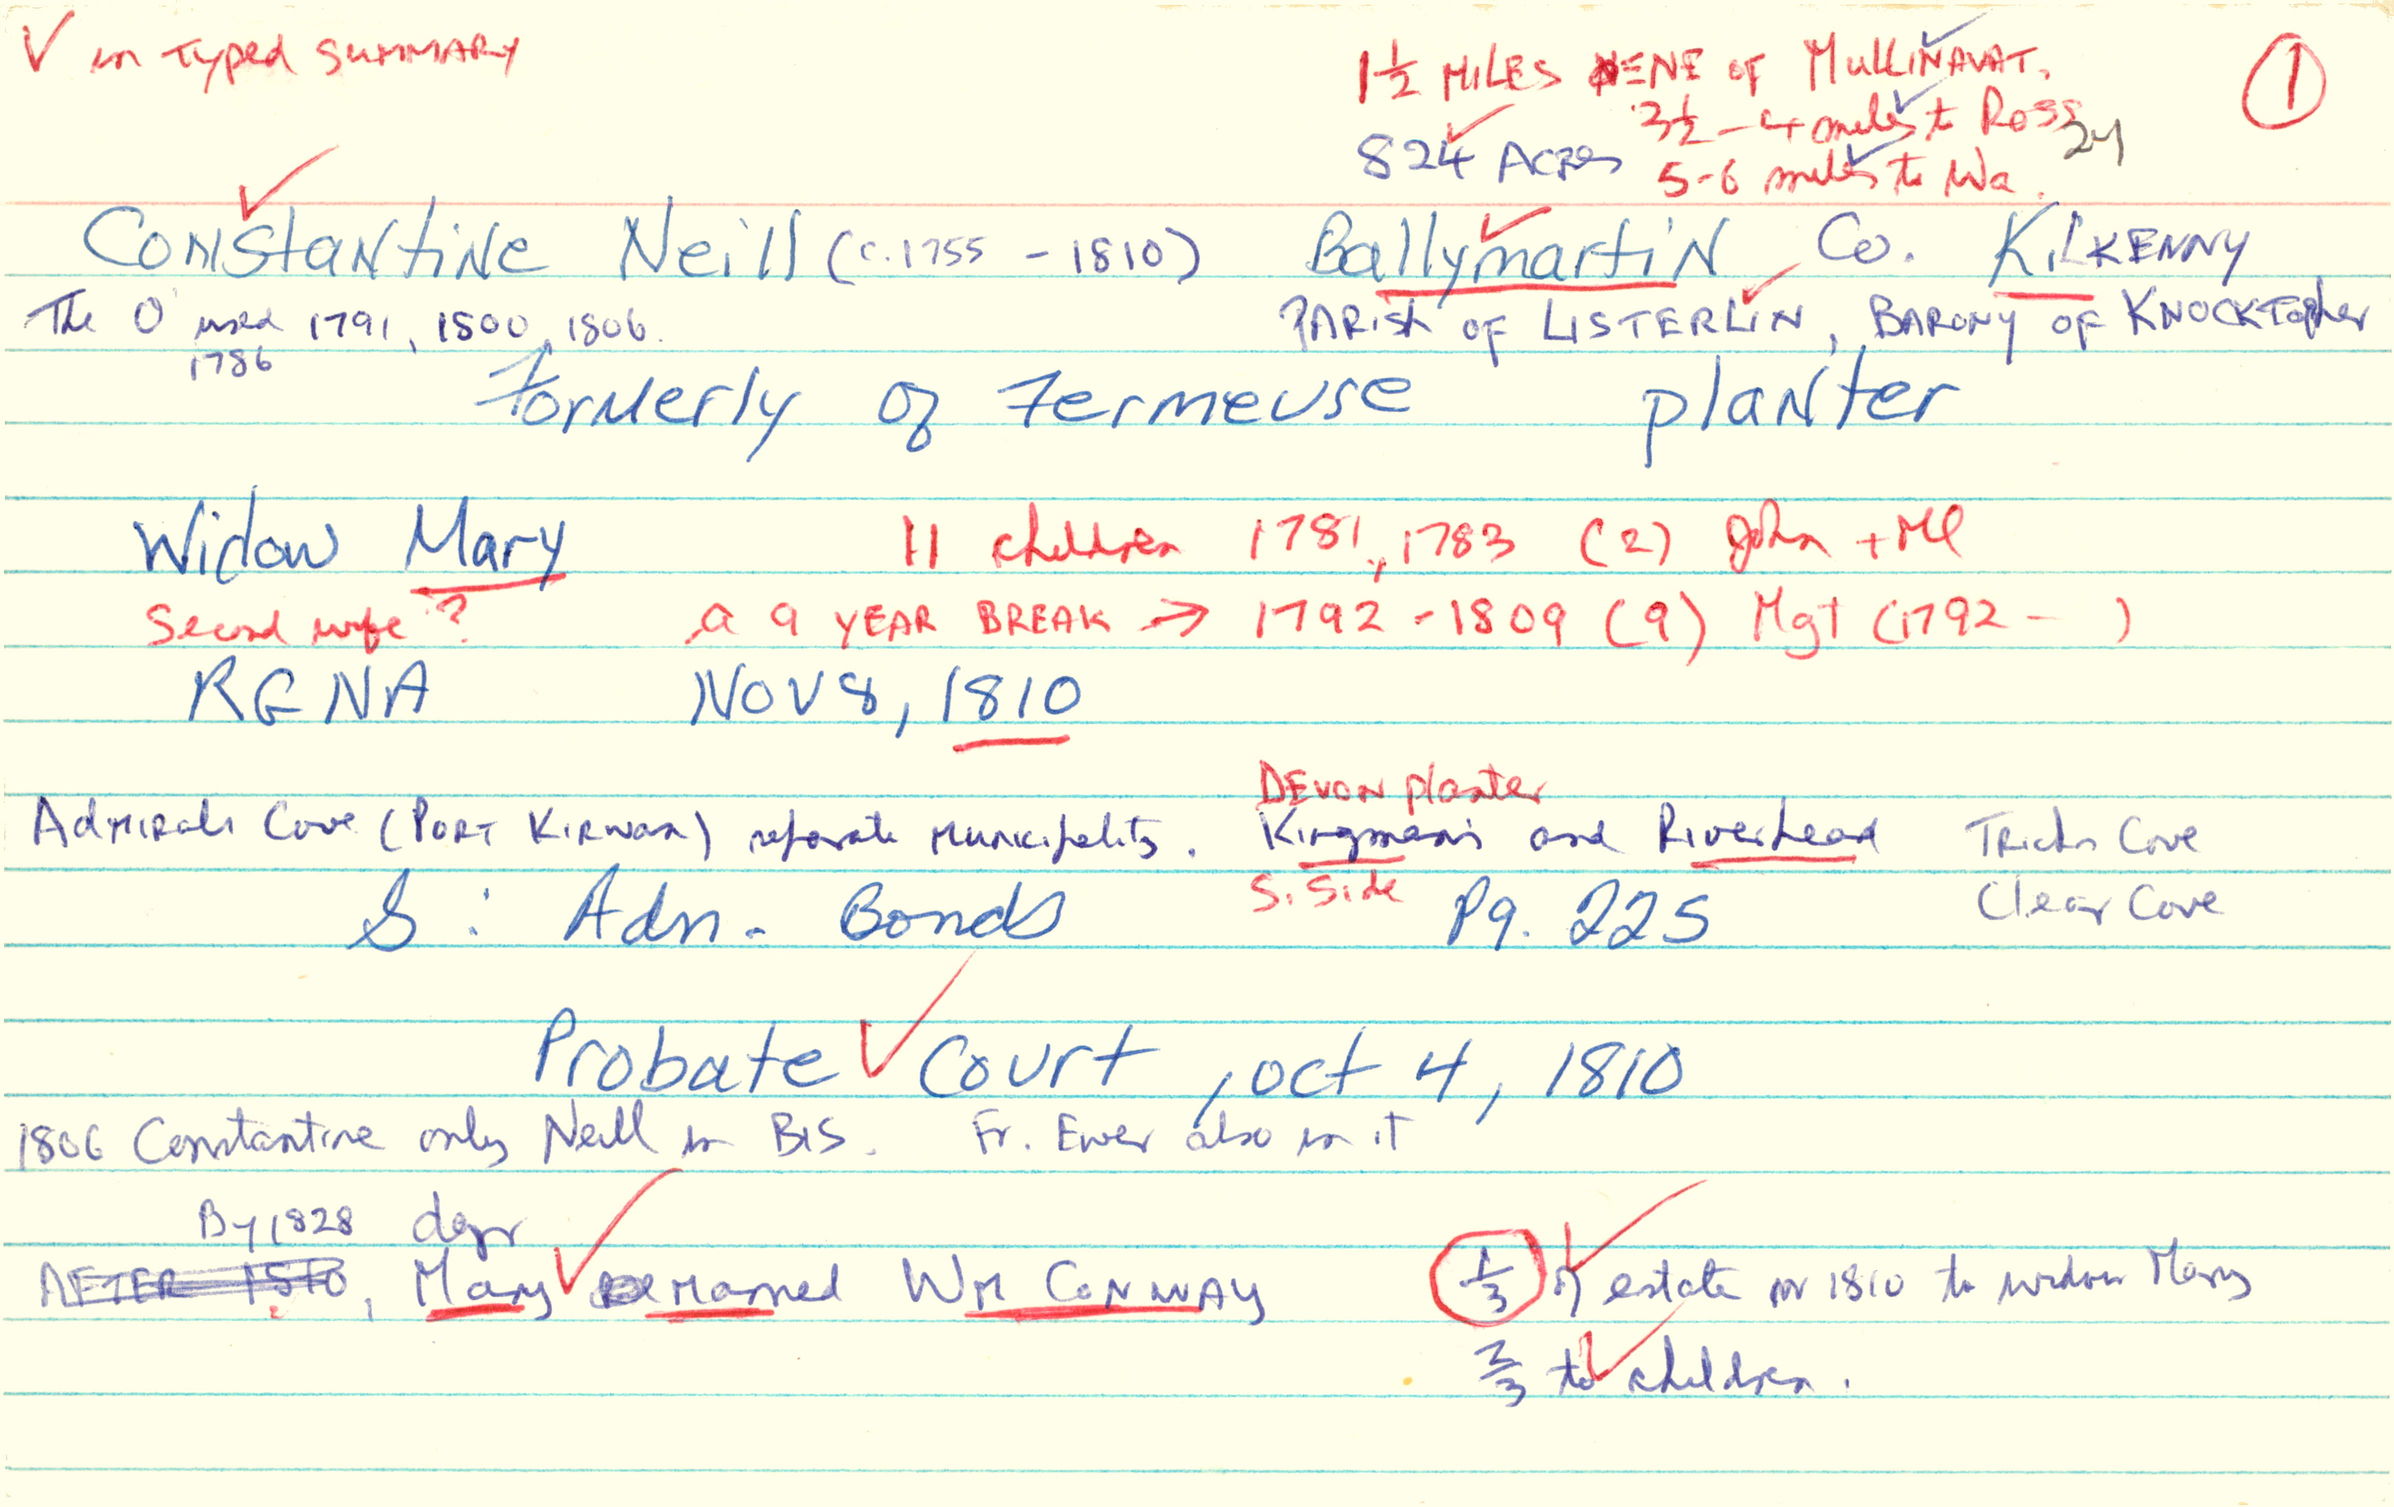 ✓ in Typed SUMMARY
1 1/2 MILES ENE OF MULLINAVAT.
①
3 1/2 - 4 miles to Ross
824 Acres
24
5-6 miles to Wa.
Constantine Neill (c.1755 - 1810) Ballymartin Co. KILKENNY
The O' used 1791, 1800, 1806.
1786
PARISH OF LISTERLIN, BARONY OF KNOCKTOPHER
Formerly of Fermeuse planter
Widow Mary
11 children 1781, 1783 (2) John + Ml
Second wife?
a 9 YEAR BREAK → 1792 - 1809 (9) Mgt (1792 - )
RGNA NOV 8, 1810
DEVON planter
Admirals Cove (PORT KIRWAN) separate Municipality. Kingman's and Riverhead Tricks Cove
S. Side
Clear Cove
S: Adn. Bonds Pg. 225
Probate Court, oct 4, 1810
1806 Constantine only Neill in BIS. Fr. Ewer also in it
By 1828
AFTER 1810, Mary married WM CONWAY
1/3 of estate in 1810 to widow Mary
2/3 to children.